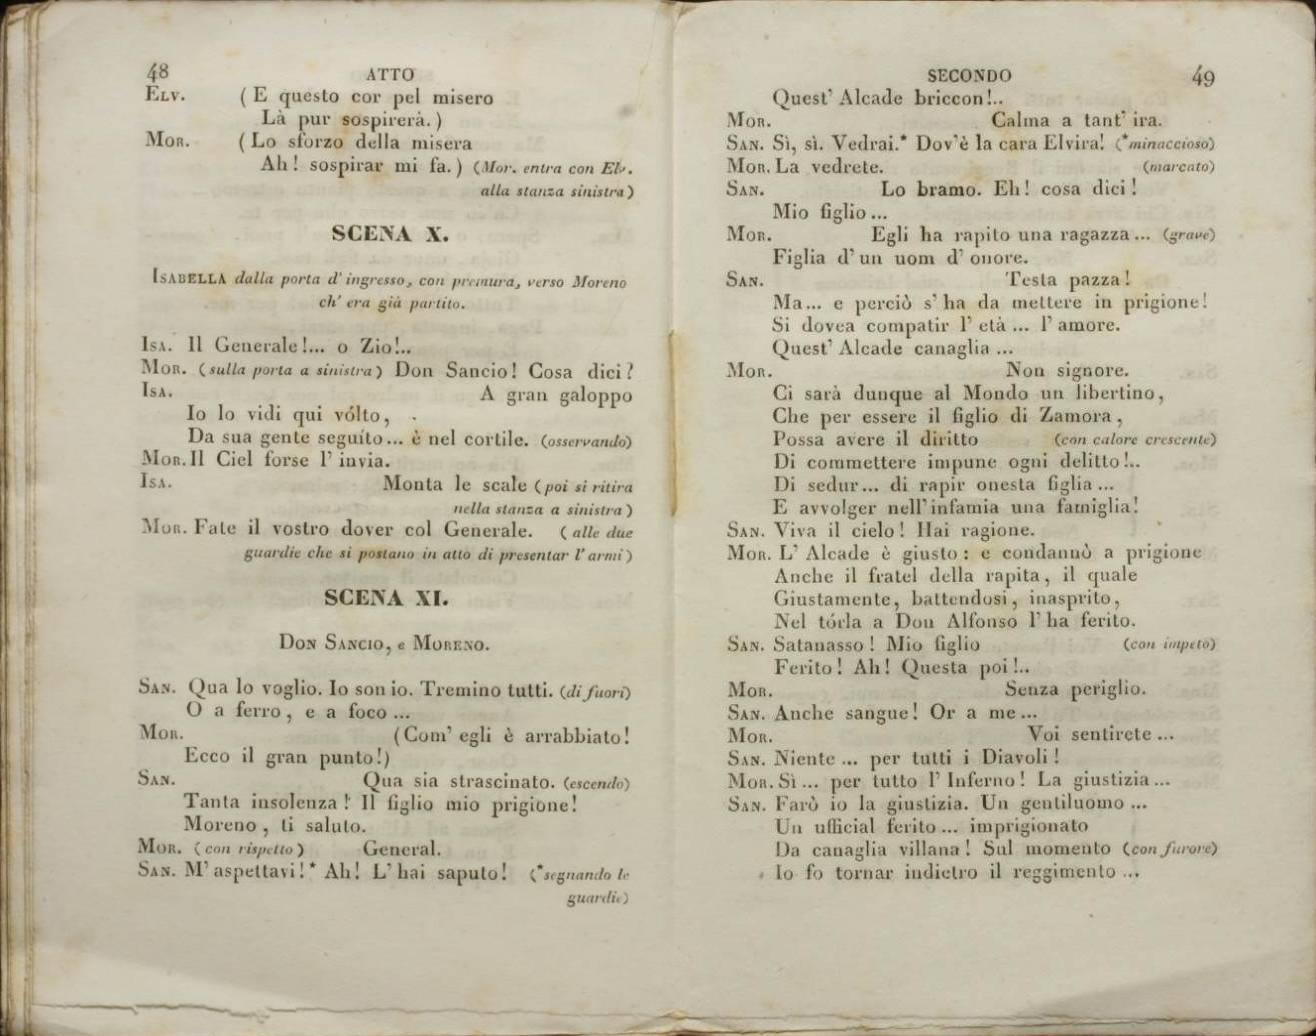 48 ATTO
ELV. ( E questo cor pel misero
Là pur sospirerà. )
MOR. ( Lo sforzo della misera
Ah! sospirar mi fa. ) (Mor. entra con Elv.
alla stanza sinistra)
SCENA X.
ISABELLA dalla porta d' ingresso, con premura, verso Moreno
ch' era già partito.
ISA. Il Generale!... o Zio!..
MOR. (sulla porta a sinistra) Don Sancio! Cosa dici?
ISA. A gran galoppo
Io lo vidi qui vólto,
Da sua gente seguíto... è nel cortile. (osservando)
MOR. Il Ciel forse l' invia.
ISA. Monta le scale (poi si ritira
nella stanza a sinistra)
MOR. Fate il vostro dover col Generale. ( alle due
guardie che si postano in atto di presentar l' armi )
SCENA XI.
DON SANCIO, e MORENO.
SAN. Qua lo voglio. Io son io. Tremino tutti. (di fuori)
O a ferro, e a foco ...
MOR. (Com' egli è arrabbiato!
Ecco il gran punto!)
SAN. Qua sia strascinato. (escendo)
Tanta insolenza! Il figlio mio prigione!
Moreno, ti saluto.
MOR. (con rispetto) General.
SAN. M' aspettavi!* Ah! L' hai saputo! (*segnando le
guardie)
SECONDO 49
Quest' Alcade briccon!..
MOR. Calma a tant' ira.
SAN. Sì, sì. Vedrai.* Dov'è la cara Elvira! (*minaccioso)
MOR. La vedrete. (marcato)
SAN. Lo bramo. Eh! cosa dici!
Mio figlio ...
MOR. Egli ha rapito una ragazza ... (grave)
Figlia d' un uom d' onore.
SAN. Testa pazza!
Ma... e perciò s' ha da mettere in prigione!
Si dovea compatir l' età ... l' amore.
Quest' Alcade canaglia ...
MOR. Non signore.
Ci sarà dunque al Mondo un libertino,
Che per essere il figlio di Zamora,
Possa avere il diritto (con calore crescente)
Di commettere impune ogni delitto!..
Di sedur... di rapir onesta figlia ...
E avvolger nell' infamia una famiglia!
SAN. Viva il cielo! Hai ragione.
MOR. L' Alcade è giusto: e condannò a prigione
Anche il fratel della rapita, il quale
Giustamente, battendosi, inasprito,
Nel tórla a Don Alfonso l' ha ferito.
SAN. Satanasso! Mio figlio (con impeto)
Ferito! Ah! Questa poi!..
MOR. Senza periglio.
SAN. Anche sangue! Or a me ...
MOR. Voi sentirete ...
SAN. Niente ... per tutti i Diavoli!
MOR. Sì ... per tutto l' Inferno! La giustizia ...
SAN. Farò io la giustizia. Un gentiluomo ...
Un ufficial ferito ... imprigionato
Da canaglia villana! Sul momento (con furore)
Io fo tornar indietro il reggimento ...